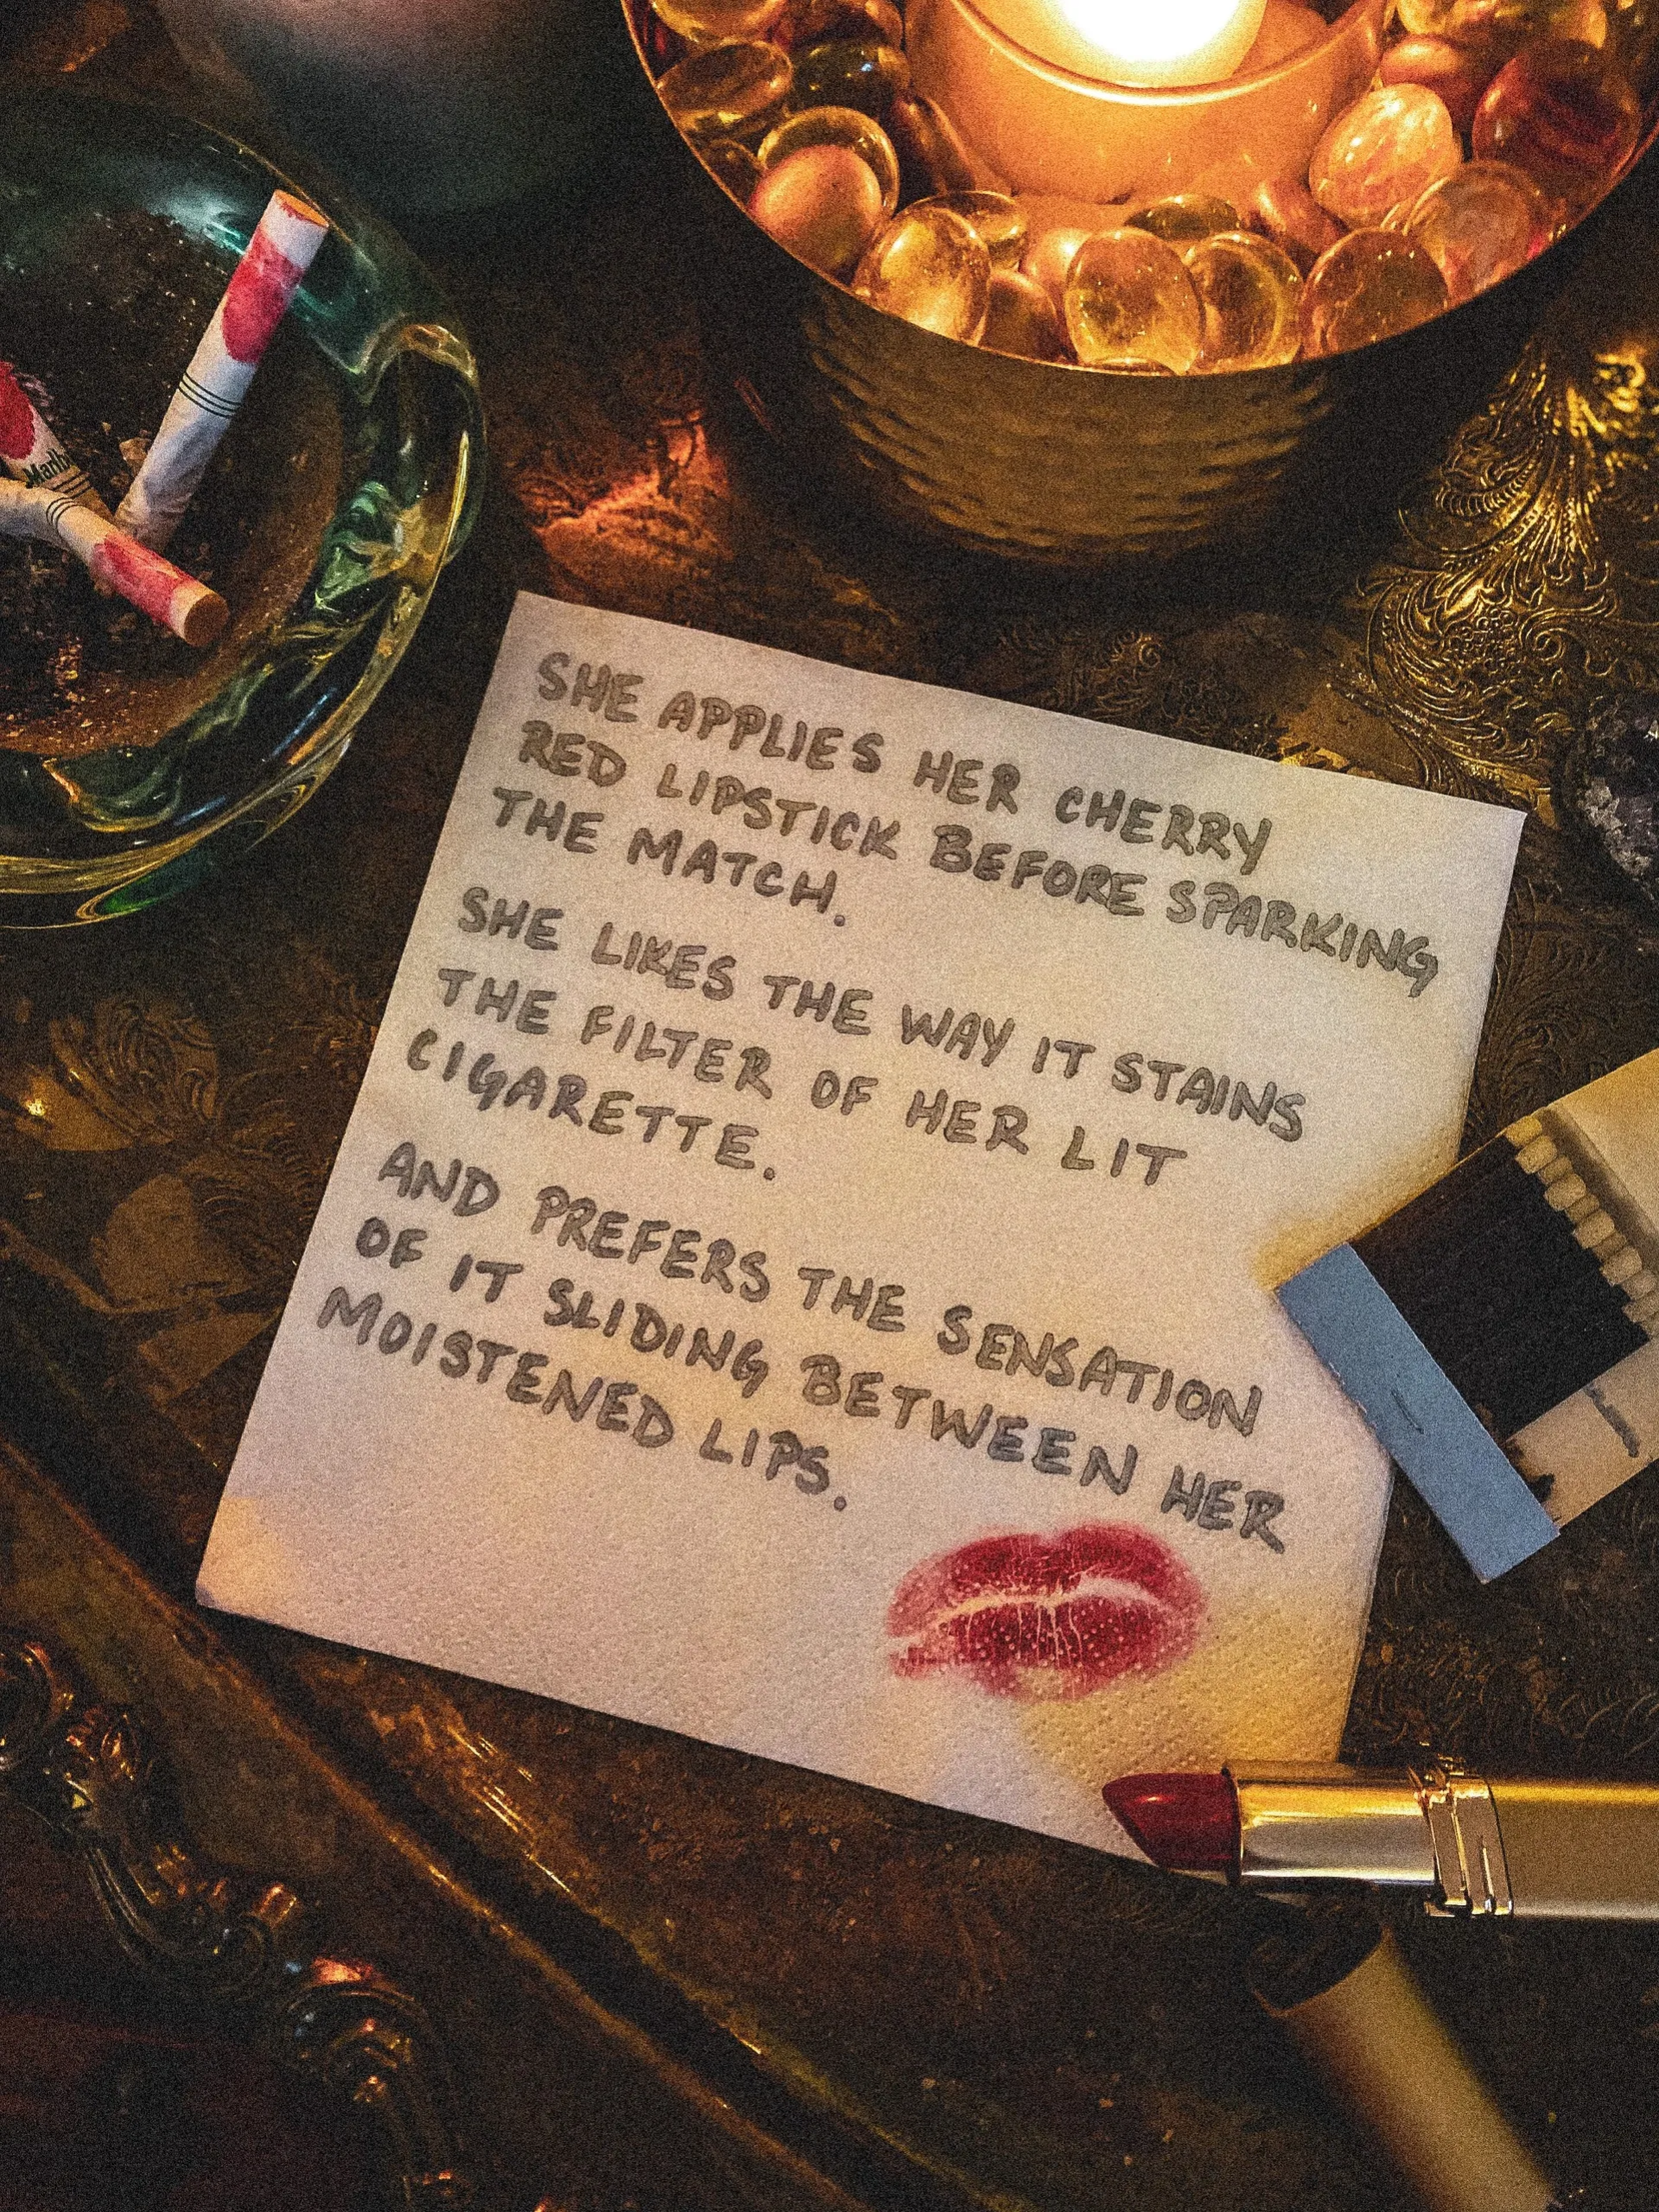 Marlbo
SHE APPLIES HER CHERRY
RED LIPSTICK BEFORE SPARKING
THE MATCH.
SHE LIKES THE WAY IT STAINS
THE FILTER OF HER LIT
CIGARETTE.
AND PREFERS THE SENSATION
OF IT SLIDING BETWEEN HER
MOISTENED LIPS.